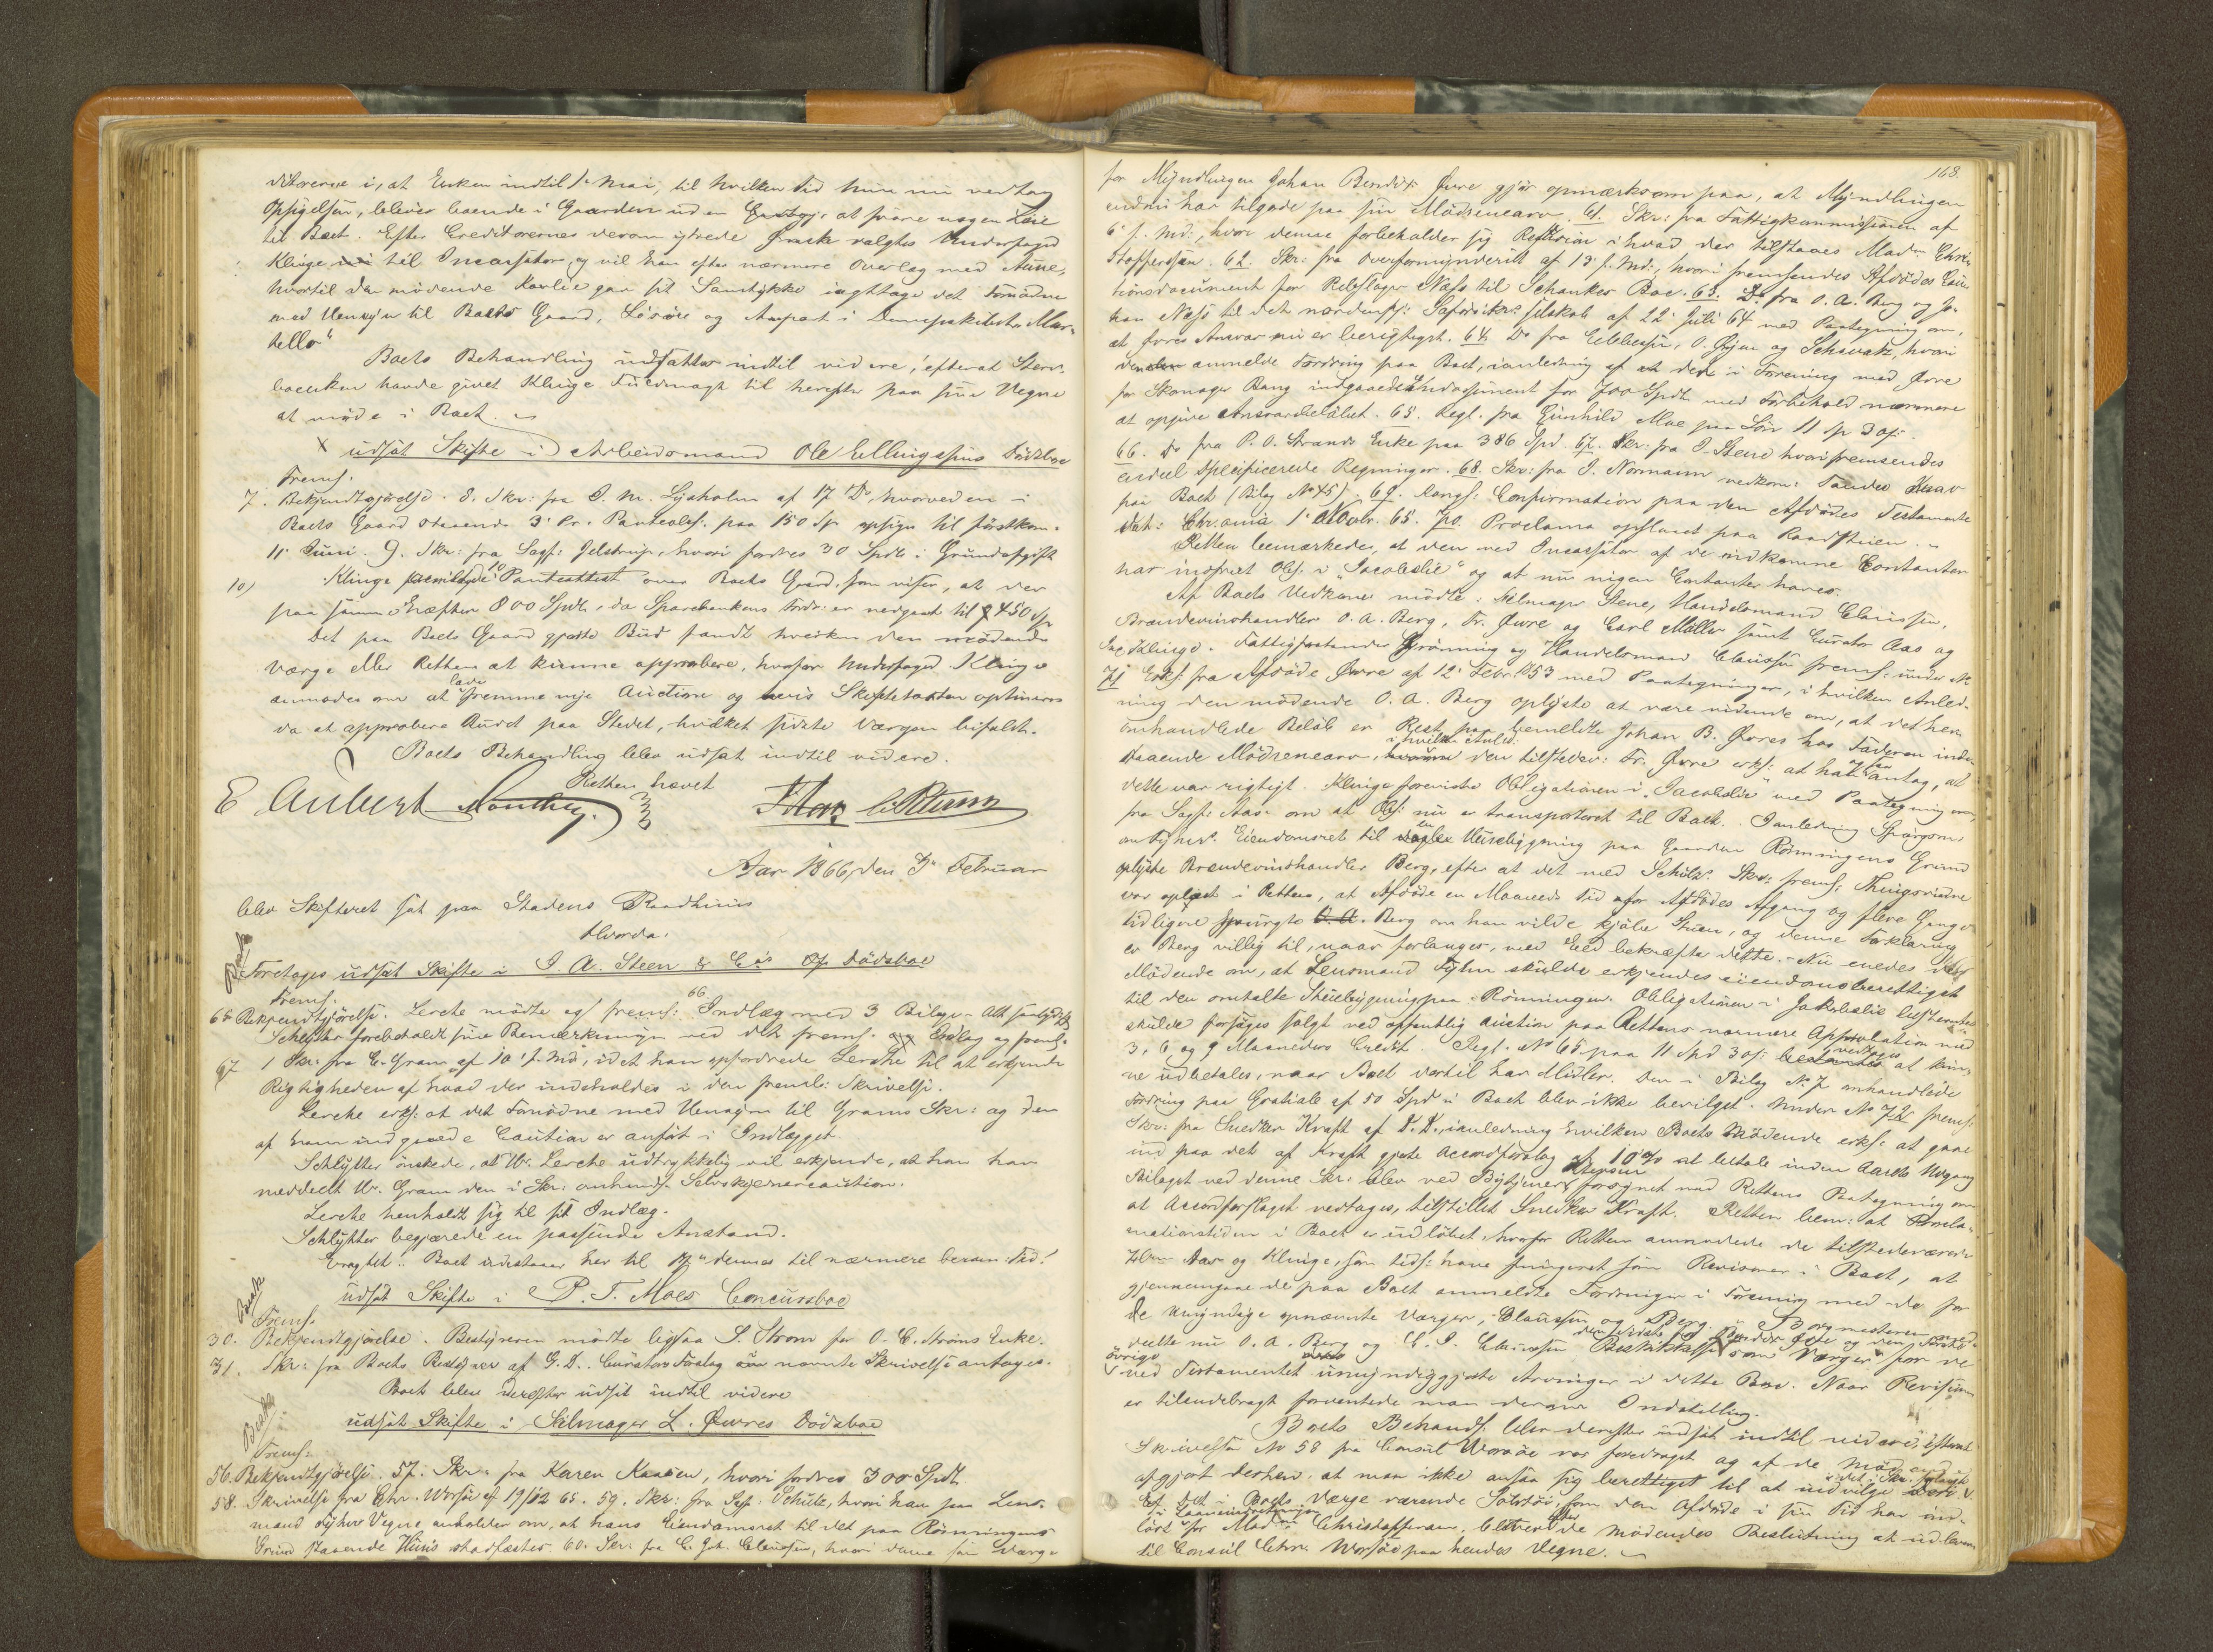 ditorerne i, at Enken indtil 1ste Mai, til hvilken Tid hun nu vedtog
Opsigelsen, bliver boende i Gaarden uden at svare nogen Leie
til Boet. Efter Creditorernes derom ytrede Ønske valgtes Underfoged
Klinge til Incassator, og vil han efter nærmere Overlæg med Aune,
hvortil den mødende Kavlie gav sit Samtykke iagttage det Fornødne
med Hensyn til Boets Gaard, Løsøre og Anpart i Dampskibet "Mar-
tello"
Boets Behandling udsattes indtil videre, efterat Sterv-
boenken havde givet Klinge Fuldmagt til herefter paa sine Vegne
at møde i Boet.
X udsat Skifte i Arbeidsmand Ole Ellingsens Dødsboe
Frems.
7. Bekjendtgjørelse. 8. Skr: fra I. M. Lysholm af 17 Ds, hvorved en i
Boets Gaard staaende 3die Pr. Panteobl. paa 150 Sp opsiges til førstkom.
11 Juni. 9. Skr: fra Sagf: Jelstrup, hvori fordres 30 Spd. i Grundafgift
10) Klinge fremlagde 10 Pantattest over Boets Gaard, som viser, at der
paa samme hæfter 800 Spd., da Sparebankens Fordr: er nedgaaet til 450 Sp
Det paa Boets Gaard gjorte Bud fandt hverken den mødende
Værge eller Retten at kunne approbere, hvorfor Underfoged Klinge
anmodes om at lade fremme nye Auctioner og hvis Skiftetaxten opnaaes
da at approbere Budet paa Stedet, hvilket sidste Værgen bifaldt.
Boets Behandling blev udsat indtil videre.
Retten hævet
E Aubert
Aar 1866, den 3die Februar
blev Skifteret sat paa Stadens Raadhuus
Hvorda:
Foretoges udsat Skifte i I. A. Steen & Co's Op. Dødsboe
Frems.
65 Bekjendtgjørelse. Lerche mødte og frems: 66 Indlæg med 3 Bilage - Alt saalydende
Schlytter forbeholdt sine Bemærkninger ved det frems. Indlæg og frems.
67 1 Skr: fra C. Gram af 10' f. Md, idet han opfordrede Lerche til at erkjende
Rigtigheden af hvad der indeholdes i den freml: Skrivelse.
Lerche erkl: at det Fornødne med Hensyn til Grams Skr: og den
af ham indgaaede Caution er anført i Indlægget.
Schlytter ønskede, at Hr. Lerche udtrykkelig vil erkjende, at han har
meddelt Hr. Gram den i Skr: omhandl. Selvskyldnercaution.
Lerche henholdt sig til sit Indlæg.
Schlytter begjærede en passende Anstand.
Eragtet: Boet udstaaer her til dennes til nærmere beram: Tid.
udsat Skifte i P. T. Moes Concursboe
Frems.
30. Bekjendtgjørelse. Bestyreren mødte ligsaa S. Strøm for O. C. Strøms Enke.
31. Skr: fra Boets Bestyrer af G. D. Curators Forslag i nævnte Skrivelse antoges.
Boet blev derefter udsat indtil videre
udsat Skifte i Seilmager L. Øwres Dødsboe
Frems:
56. Bekjendtgjørelse. 57. Skr: fra Karen Kaasen, hvori fordres 300 Spd.
58. Skrivelse fra Chr. Worsøe af 19/12 65. 59. Skr: fra Sagf. Schulz, hvori han paa Lens-
mand Dyhres Vegne anholder om, at hans Eiendomsret til det paa Rønningens
Grund staaende Huus stadfæstes. 60. Skr: fra C. Joh. Claussen, hvori denne som Værge
168.
for Myndlingen Johan Bendix Øwre gjør opmærksom paa, at Myndlingen
endnu har tilgode paa sin Mødrenearv. 61. Skr: fra Fattigkommissionen af
6' f. Md:, hvori denne forbeholder sig Refusion i hvad der tilstaaes Madm Chri-
stoffersen. 62. Skr: fra Overformynderiet af 13' f. Md:, hvori fremsendes Afdødes Cau-
tionsdocument for Rebslager Næss til Schankes Boe. 63. Do fra O. A. Berg og Jo-
han Næss til det nordenfj: Søforsikr: Selskab af 22' Juli 64 med Paategning om,
at førstes Ansvar nu er berigtiget. 64. Do fra Ebbesen, O. Øyen og Schwartz, hvori
den anmelde Fordring paa Boet, i anledning af at de i Forening med Øwre
for Skomager Bang indgaaede Endossement for 700 Spd. med Forbehold nærmere
at opgive Ansvarsbeløbet. 65. Regl. fra Gunhild Moe paa Løn 11 Sp 3 ort.
66. Do fra P. O. Strands Enke paa 386 Spd. 67. Skr: fra I. Steene hvori fremsendes
endeel specificerede Regninger. 68. Skr: fra I. Normann vedkom: Tandes Krav
paa Boet (Bilag No 45). 69. Kongl: Confirmation paa den Afdødes Testamente
dat: Chr.ania 1' Novbr. 65. 70. Proclama opslaaet paa Raadstuen.
Retten bemærkede, at den ved Incassator af de indkomne Contanter
har indfriet Obl. i "Jacobslie" og at nu ingen Contanter haves.
Af Boets Vedkom: mødte: Seilmager Steene, Handelsmand Claussen,
Brændevinshandler O. A. Berg, Fr. Øwre og Carl Møller samt Curator Aas og
Inc. Klinge. Fattigforstander Grønning og Handelsmand Claussen frems: under No
71 Erkl: fra Afdøde Øwre af 12' Febr. 1853 med Paategninger, i hvilken Anled-
ning den mødende O. A. Berg oplyste at være vidende om, at det her
omhandlede Beløb er Rest paa bemeldte Johan B. Øwres hos Faderen inde-
staaende Mødrenearv, i hvilken Anled. den tilstedev: Fr. Øwre erkl: at han antog, at
dette var rigtigt. Klinge foreviste Obligationen i "Jacobslie" med Paategning
fra Sagf: Aas om at Obl: nu er transporteret til Boet. I anledning Spørgsm:
om Dyhres Eiendomsret til en Huusbygning paa Gaarden Rønningens Grund
oplyste Brændevinshandler Berg, efter at det med Schulz's Skr: frems: Thingsvidne
var oplæst i Retten, at Afdøde en Maaneds Tid før Afdødes Afgang og flere Gange
tidligere spurgte O. A. Berg om han vilde kjøbe Stuen, og denne Forklaring
er Berg villig til, naar forlanges, med Eed bekræfte dette. Nu enedes de
Mødende om, at Lensmand Dyhre skulde erkjendes eiendomsberettiget
til den omtalte Stuebygning paa Rønningen. Obligationen i Jakobslie bestemtes
skulde forsøges solgt ved offentlig Auction paa Rettens nærmere Approbation med
3, 6 og 9 Maaneders Credit. Regl. No 65 paa 11 Spd 3 ort vedtoges at kun-
ne udbetales, naar Boet dertil har Midler. Den i Bilag No 7 omhandlede
Fordring paa Gratiale af 50 Spd i Boet blev ikke bevilget. Under No 72 frems:
Skr: fra Snedker Kraft af D. D., i anledning hvilken Boets Mødende erkl: at gaae
ind paa det af Kraft gjorte Accordforslag af 10% at betale inden Aarets Udgang
Bilaget ved denne Skr: blev ved Bytjener forsynet med Rettens Paategning om
at Accordforslaget vedtages, tilstillet Snedker Kraft. Retten bem: at Procla-
mationstiden i Boet er udløbet, hvorfor Retten anmodede de tilstedeværende
Hrr Aas og Klinge, som tids: have fungeret som Revisorer i Boet, at
gjennemgaae de paa Boet anmeldte Fordringer i Forening med de for
de Umyndige opnævnte Værger, Claussen og Berg. Borgmesteren med-
deelte nu O. A. Berg og C. J. Claussen Beskikkelse som Værger for de
øvrige
ved Testamentet umyndiggjorte Arvinger i dette Boe. Naar Revisionen
er tilendebragt forventede man derom Indstilling.
Boets Behandl. blev derefter udsat indtil videre, efterat
Skrivelse No 58 fra Consul Worsøe var foredraget og af de Mødende
afgjort derhen, at man ikke ansaa sig berettiget til at indvilge deri
Et det i Boets Værge værende Sølvtøi, som den Afdøde i sin Tid har ind-
løst for Madm Christoffersen, blev efter de Mødendes Beslutning at udlevere
til Consul Chr. Worsøe paa hendes Vegne.